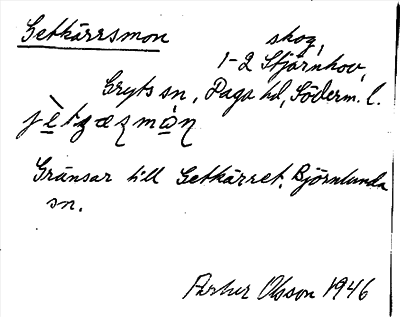 Getkärrsmon skog,
1-2 Stjärnhov,
Gryts sn, Daga hd, Söderm. l.
Gränsar till Getkärret, Björnlunda
sn.
Arthur Olsson 1946